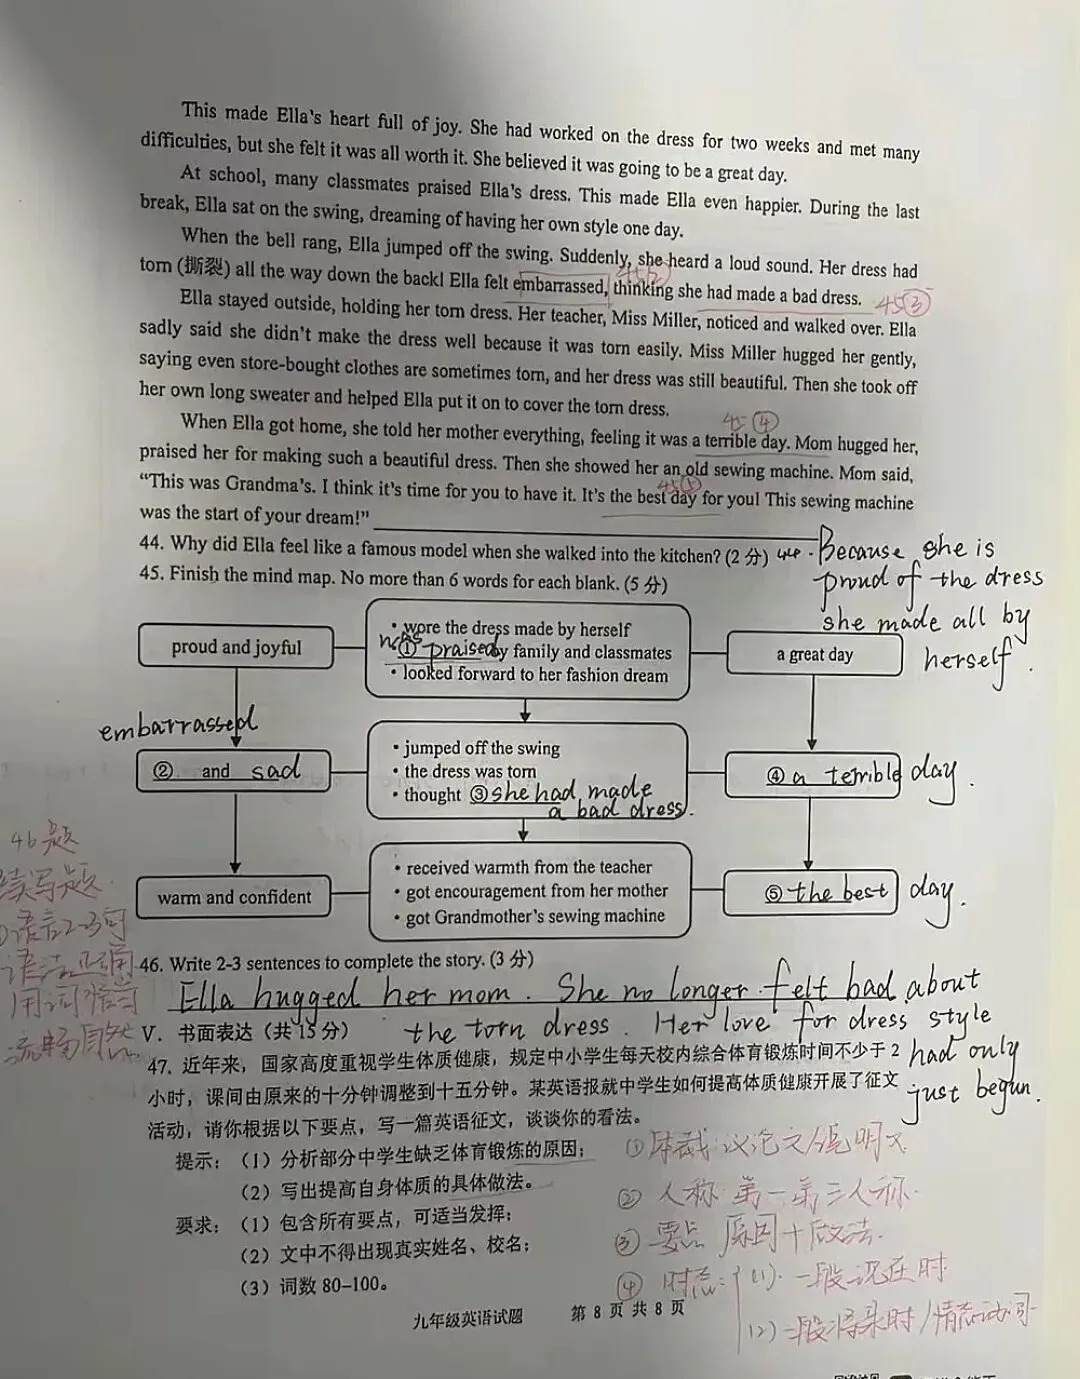 This made Ella's heart full of joy. She had worked on the dress for two weeks and met many
difficulties, but she felt it was all worth it. She believed it was going to be a great day.
At school, many classmates praised Ella's dress. This made Ella even happier. During the last
break, Ella sat on the swing, dreaming of having her own style one day.
When the bell rang, Ella jumped off the swing. Suddenly, she heard a loud sound. Her dress had
torn (撕裂) all the way down the back! Ella felt embarrassed, thinking she had made a bad dress.
45②
45③
Ella stayed outside, holding her torn dress. Her teacher, Miss Miller, noticed and walked over. Ella
sadly said she didn't make the dress well because it was torn easily. Miss Miller hugged her gently,
saying even store-bought clothes are sometimes torn, and her dress was still beautiful. Then she took off
her own long sweater and helped Ella put it on to cover the torn dress.
45④
When Ella got home, she told her mother everything, feeling it was a terrible day. Mom hugged her,
praised her for making such a beautiful dress. Then she showed her an old sewing machine. Mom said,
45⑤
"This was Grandma's. I think it's time for you to have it. It's the best day for you! This sewing machine
was the start of your dream!"
44. Why did Ella feel like a famous model when she walked into the kitchen? (2 分)
44. Because she is
proud of the dress
she made all by
herself.
45. Finish the mind map. No more than 6 words for each blank. (5 分)
proud and joyful
• wore the dress made by herself
was praised
① by family and classmates
• looked forward to her fashion dream
a great day
embarrassed
② and sad
• jumped off the swing
• the dress was torn
• thought ③ she had made
a bad dress.
④ a terrible day.
warm and confident
• received warmth from the teacher
• got encouragement from her mother
• got Grandmother's sewing machine
⑤ the best day.
46题
续写题
语言2-3句
语法正确
用词恰当
流畅自然
46. Write 2-3 sentences to complete the story. (3 分)
Ella hugged her mom. She no longer felt bad about
the torn dress. Her love for dress style
had only
just begun.
V. 书面表达（共 15 分）
47. 近年来，国家高度重视学生体质健康，规定中小学生每天校内综合体育锻炼时间不少于 2
小时，课间由原来的十分钟调整到十五分钟。某英语报就中学生如何提高体质健康开展了征文
活动，请你根据以下要点，写一篇英语征文，谈谈你的看法。
提示：（1）分析部分中学生缺乏体育锻炼的原因；
（2）写出提高自身体质的具体做法。
要求：（1）包含所有要点，可适当发挥；
（2）文中不得出现真实姓名、校名；
（3）词数 80-100。
① 体裁：议论文/说明文
② 人称：第一、第三人称.
③ 要点 原因+做法.
④ 时态：(1). 一般现在时
(2) 一般将来时/情态动词
九年级英语试题 第 8 页 共 8 页